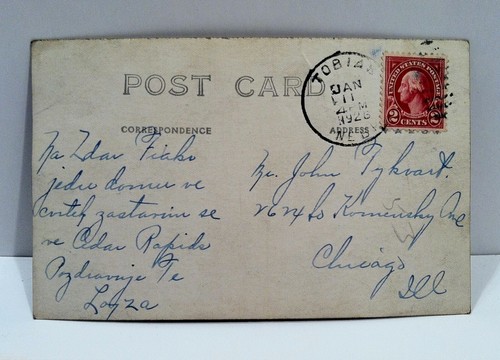 POST CARD
CORRESPONDENCE
ADDRESS
TOBIAS
JAN
11
4 PM
1926
NEB.
UNITED STATES POSTAGE
2 CENTS 2
Na Zdar Fiako
jedu domu ve
zastavim se
ve Cedar Rapids
Pozdravuje Te
Lojza
Mr. John Tykvart.
2624 So Komensky Ave
Chicago
Ill